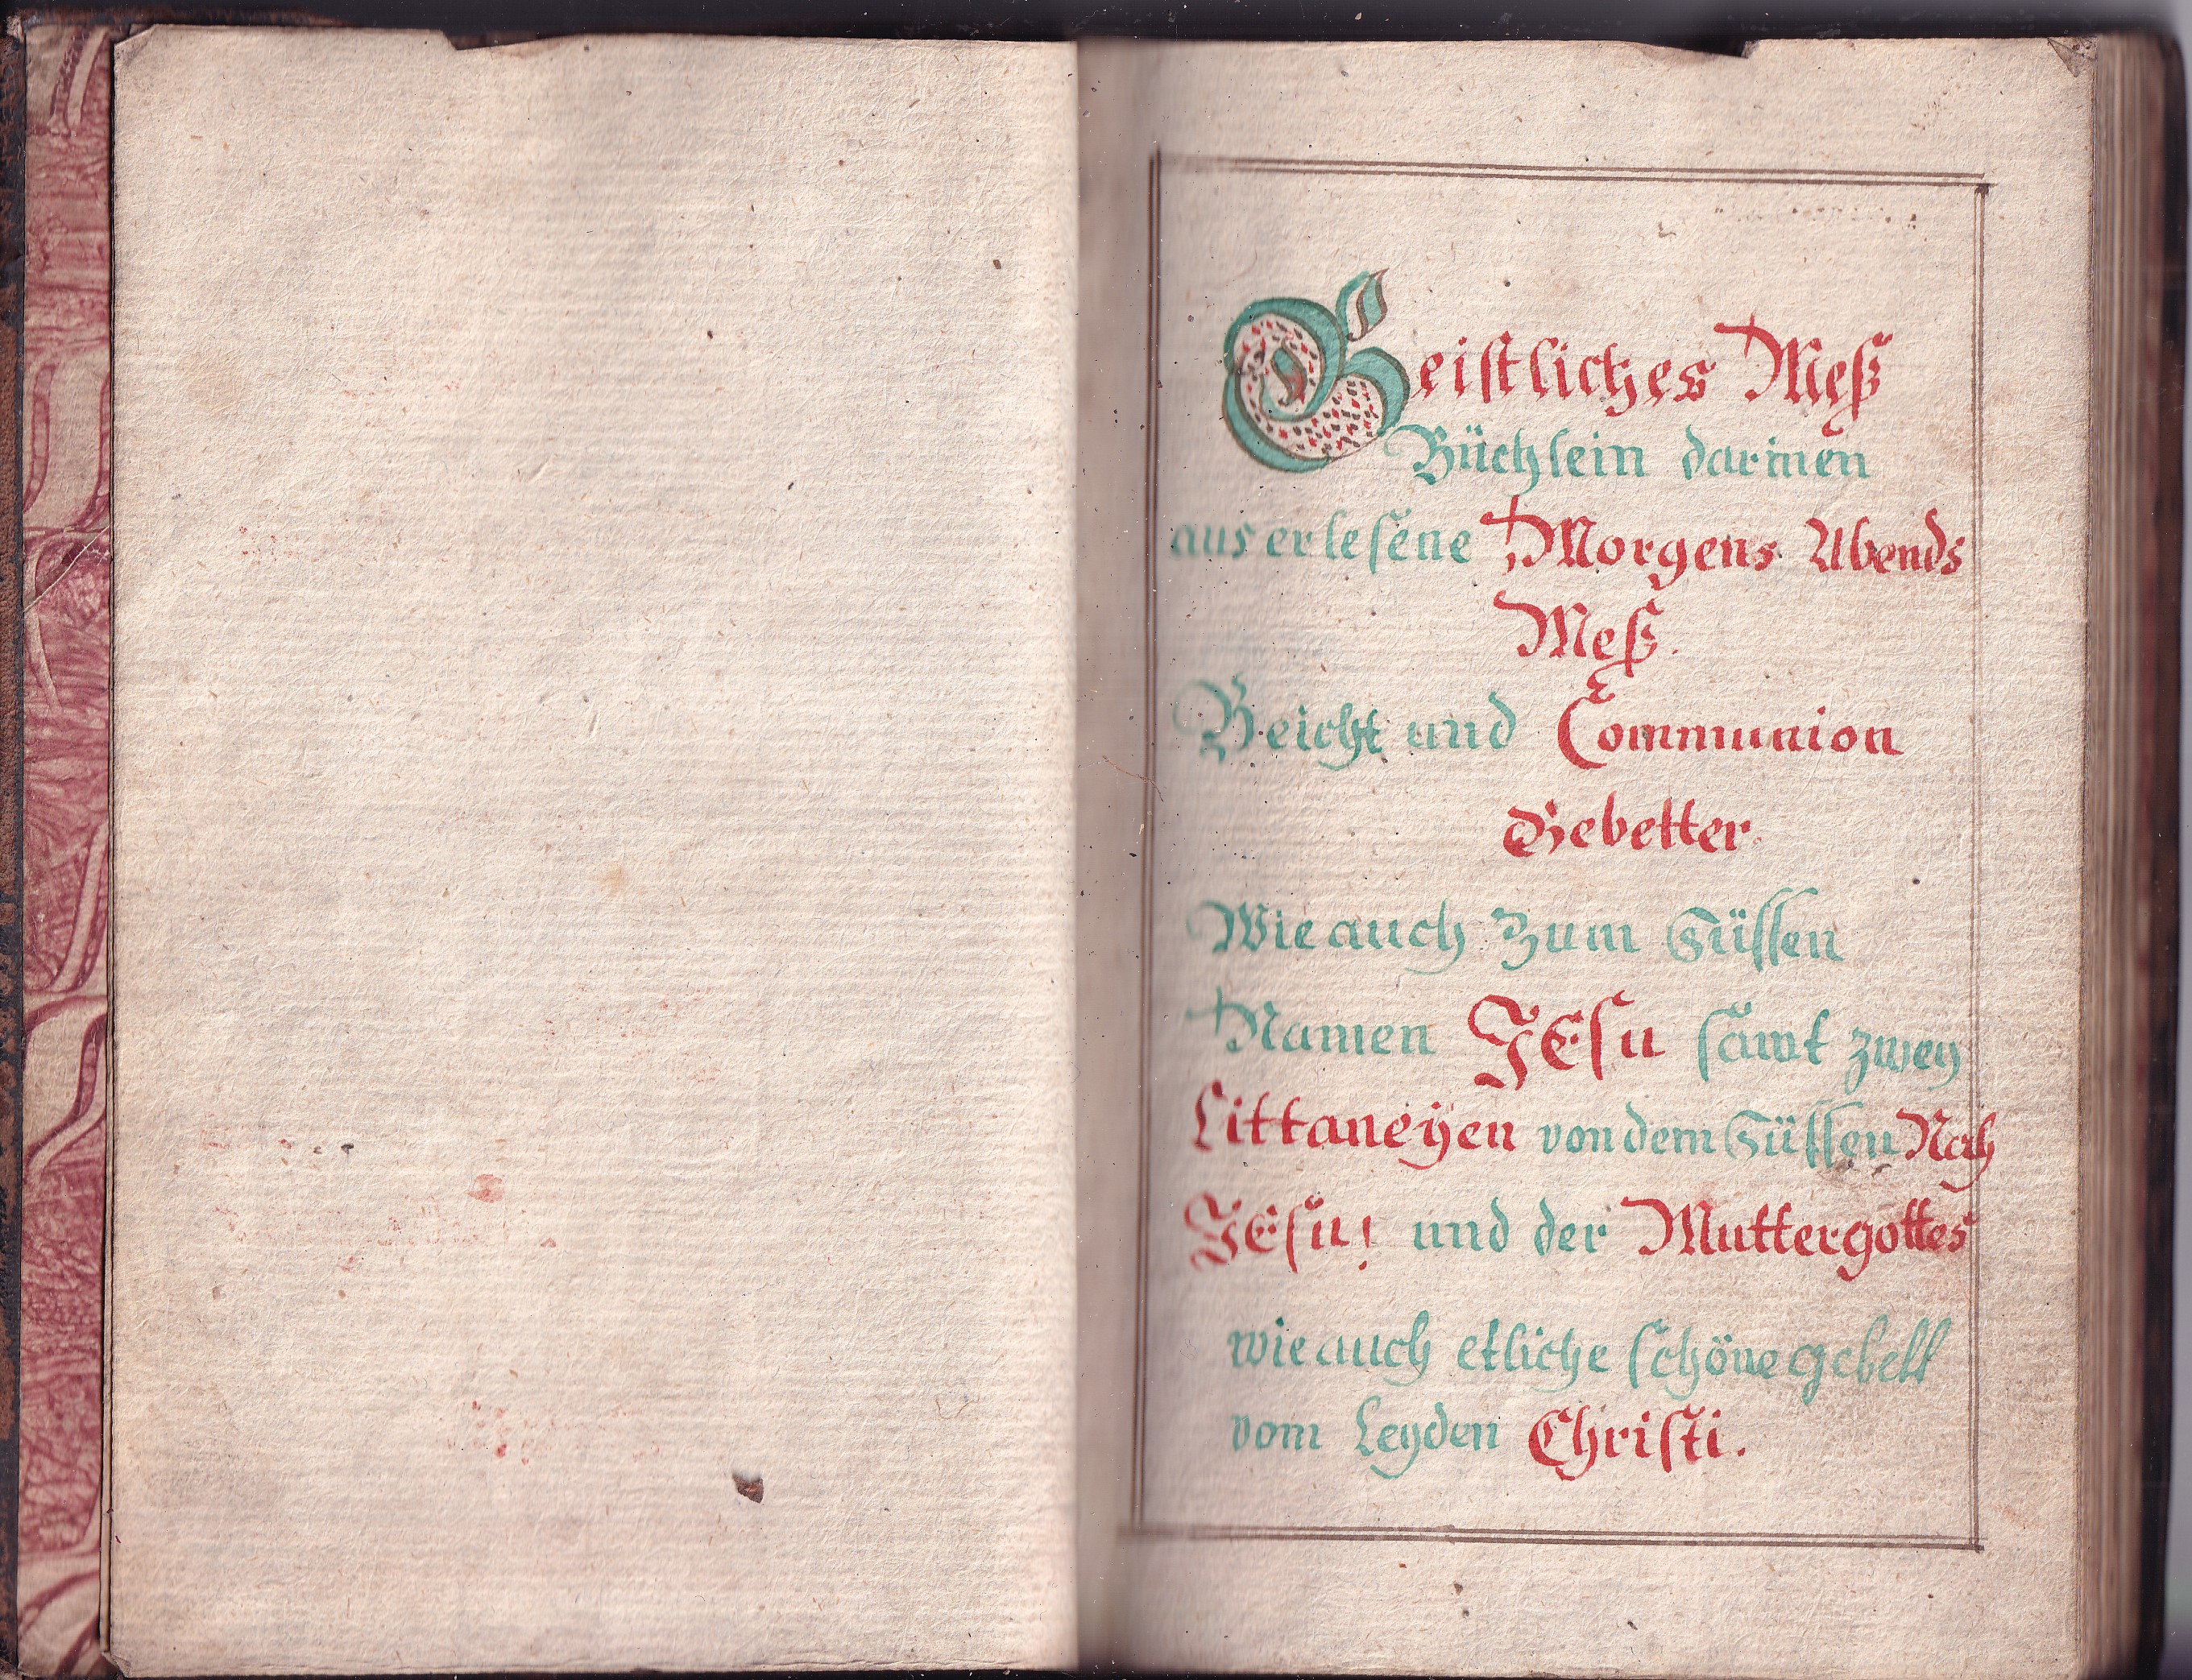 Geistliches Meß
Büchlein darinen
auserlesene Morgens Abends
Meß.
Beicht und Communion
Gebetter.
Wie auch Zum Süssen
Namen JEsu samt zwey
Littaneyen von dem Süssen Nah
JEsu! und der Muttergottes
wie auch etliche schöne gebett
vom Leyden Christi.